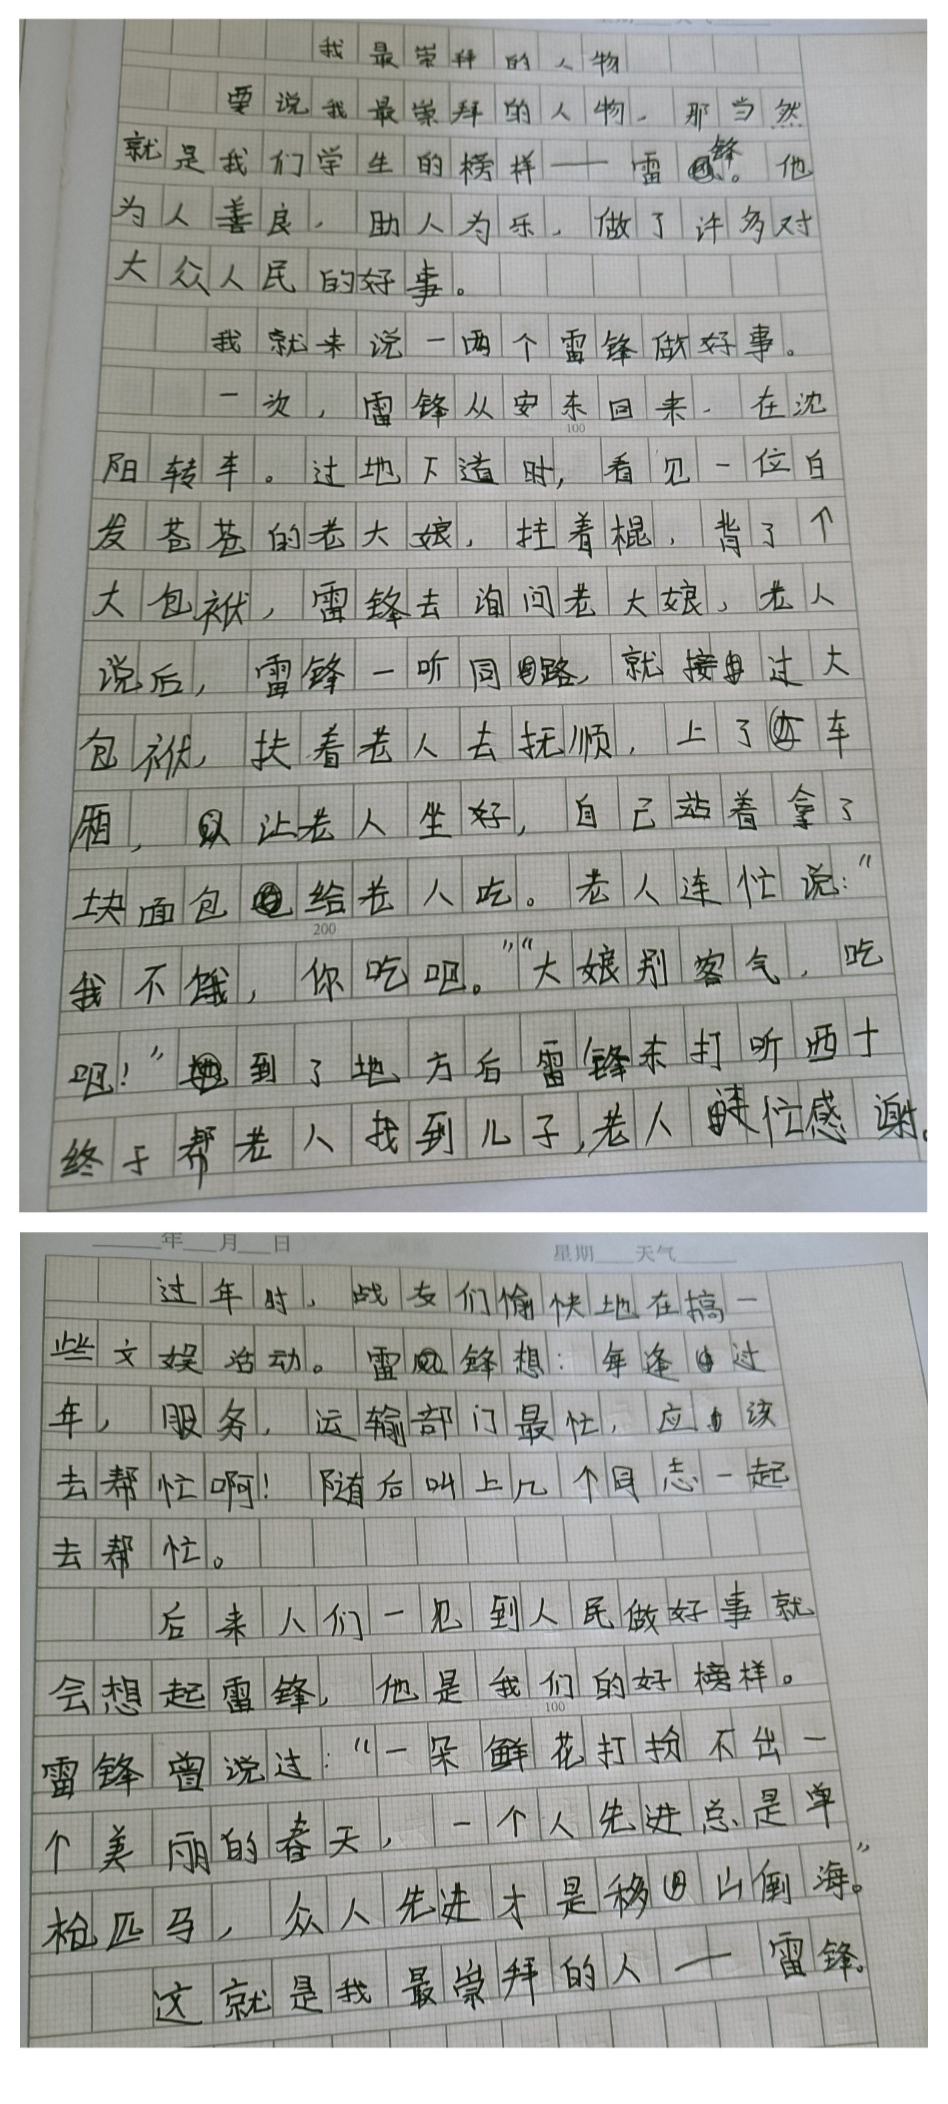 我最崇拜的人物
要说我最崇拜的人物，那当然
就是我们学生的榜样——雷锋。他
为人善良，助人为乐，做了许多对
大众人民的好事。
我就来说一两个雷锋做好事。
一次，雷锋从安东回来，在沈
100
阳转车。过地下道时，看见一位白
发苍苍的老大娘，拄着棍，背了个
大包袱，雷锋去询问老大娘，老人
说后，雷锋一听同路，就接过大
包袱，扶着老人去抚顺，上了车
厢，让老人坐好，自己站着拿了
块面包给老人吃。老人连忙说：“
200
我不饿，你吃吧。”“大娘别客气，吃
吧！”到了地方后雷锋东打听西
终于帮老人找到儿子，老人连忙感谢。
年 月 日
星期 天气
过年时，战友们愉快地在搞一
些文娱活动。雷锋想：每逢过
年，服务，运输部门最忙，应该
去帮忙啊！随后叫上几个同志一起
去帮忙。
后来人们一见到人民做好事就
会想起雷锋，他是我们的好榜样。
100
雷锋曾说过：“一朵鲜花打扮不出一
个美丽的春天，一个人先进总是单
枪匹马，众人先进才是移山倒海。”
这就是我最崇拜的人——雷锋。